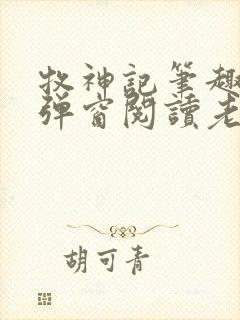 牧神記筆趣
彈窗閱讀老
胡可青